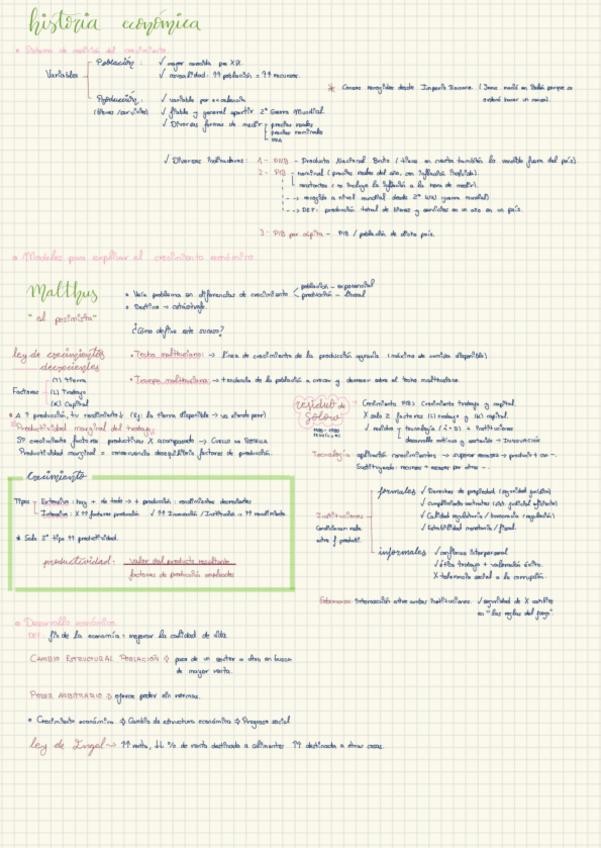 historia económica
• Sistema de medida del crecimiento
Variables
Población: ✓ mayor medida pre XIX.
✓ causalidad: ↑↑ población = ↑↑ recursos.
* Censos recogidos desde Imperio Romano. (Jesús nació en Belén porque se
ordenó hacer un censo).
Producción: ✓ variable por excelencia
(bienes/servicios) ✓ fiable y general a partir 2ª Guerra Mundial.
✓ Diversas formas de medir
precios reales
precios nominales
PPA
✓ Diversos indicadores: 1- PNB - Producto Nacional Bruto (tiene en cuenta también lo vendido fuera del país).
2- PIB - nominal (precios reales del año, con inflación incluida).
constantes (no incluye la inflación a la hora de medir).
--> recogido a nivel mundial desde 2ª WW (guerra mundial)
--> DEF: producción total de bienes y servicios en un año en un país.
3- PIB per cápita - PIB / población de dicho país.
• Modelos para explicar el crecimiento económico
Malthus
"el pesimista"
• Veía problema en diferencias de crecimiento < población - exponencial
producción - lineal
• Destino → catástrofe.
¿Cómo define este suceso?
ley de crecimientos
decrecientes
• Techo maltusiano: → línea de crecimiento de la producción agraria (máximo de comida disponible)
• Trampa maltusiana: → tendencia de la población a crecer y chocar sobre el techo maltusiano.
Factores
(T) Tierra
(L) Trabajo
(K) Capital
• A ↑ producción, tu rendimiento ↓ (Ej: la tierra disponible → va siendo peor)
Productividad marginal del trabajo
Si crecimiento factores productivos X acompasado →
Productividad marginal = consecuencia desequilibrio factores de producción.
residuo de
Solow
Crecimiento PIB > Crecimiento trabajo y capital.
X solo 2 factores (L) trabajo y (K) capital.
✓ residuo = tecnología (I+D) + instituciones
Tecnología: aplicación conocimientos → superar escasez → producir + con -.
Sustituyendo recursos + escasos por otros -.
Crecimiento
Tipos
Extensivo: hay + de todo → + producción: rendimientos decrecientes
Intensivo: X ↑↑ factores producción ✓ ↑↑ Innovación / Institución → ↑↑ rendimiento
* Solo 2º tipo ↑↑ productividad.
productividad: valor del producto resultante
factores de producción empleados
Instituciones
formales
✓ Derechos de propiedad (seguridad jurídica)
✓ cumplimiento contratos (sist. judicial eficiente)
✓ Calidad regulatoria / burocracia (regulación)
✓ Estabilidad monetaria / fiscal.
informales
✓ confianza interpersonal
✓ ética trabajo + valoración éxito.
X tolerancia social a la corrupción.
Gobernanza: Interacción entre ambas instituciones. ✓ seguridad de X cambios
en "las reglas del juego".
• Desarrollo económico
DEF: fin de la economía = mejorar la calidad de vida.
CAMBIO ESTRUCTURAL POBLACIÓN ⇒ paso de un sector a otro en busca
de mayor renta.
PODER ARBITRARIO ⇒ ejerce poder sin normas.
• Crecimiento económico ⇒ Cambio de estructura económica ⇒ Progreso social
ley de Engel → ↑↑ renta, ↓↓ % de renta destinada a alimentos ↑↑ destinada a otras cosas.